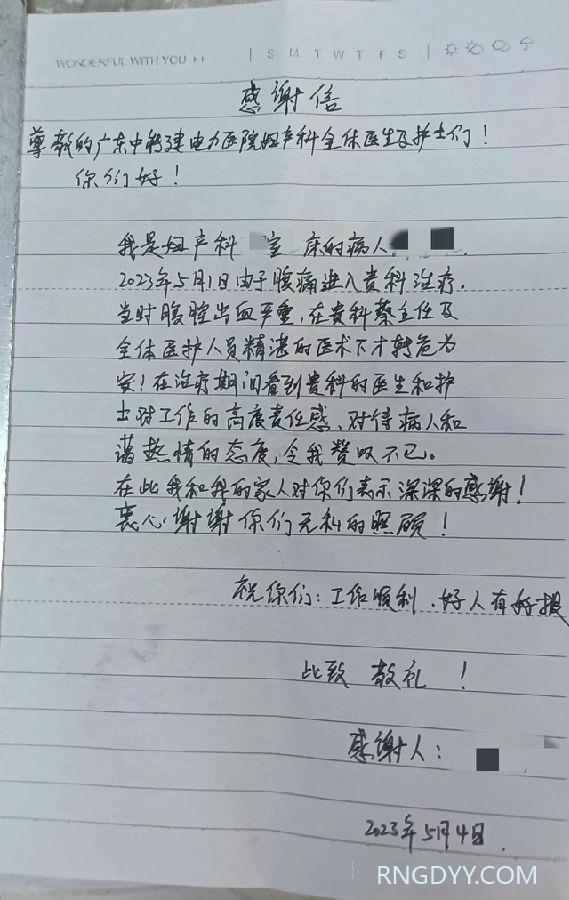 WONDERFUL WITH YOU ++ | S M T W T F S |
感谢信
尊敬的广东中能建电力医院妇产科全体医生及护士们！
你们好！
我是妇产科 室 床的病人
2023年5月1日由于腹痛进入贵科治疗.
当时腹腔出血严重,在贵科蔡主任及
全体医护人员精湛的医术下才转危为
安！在治疗期间看到贵科的医生和护
士对工作的高度责任感,对待病人和
蔼热情的态度,令我赞叹不已。
在此我和我的家人对你们表示深深的感谢！
衷心谢谢你们无私的照顾！
祝你们：工作顺利.好人有好报
此致 敬礼！
感谢人：
2023年5月4日.
RNGDYY.COM